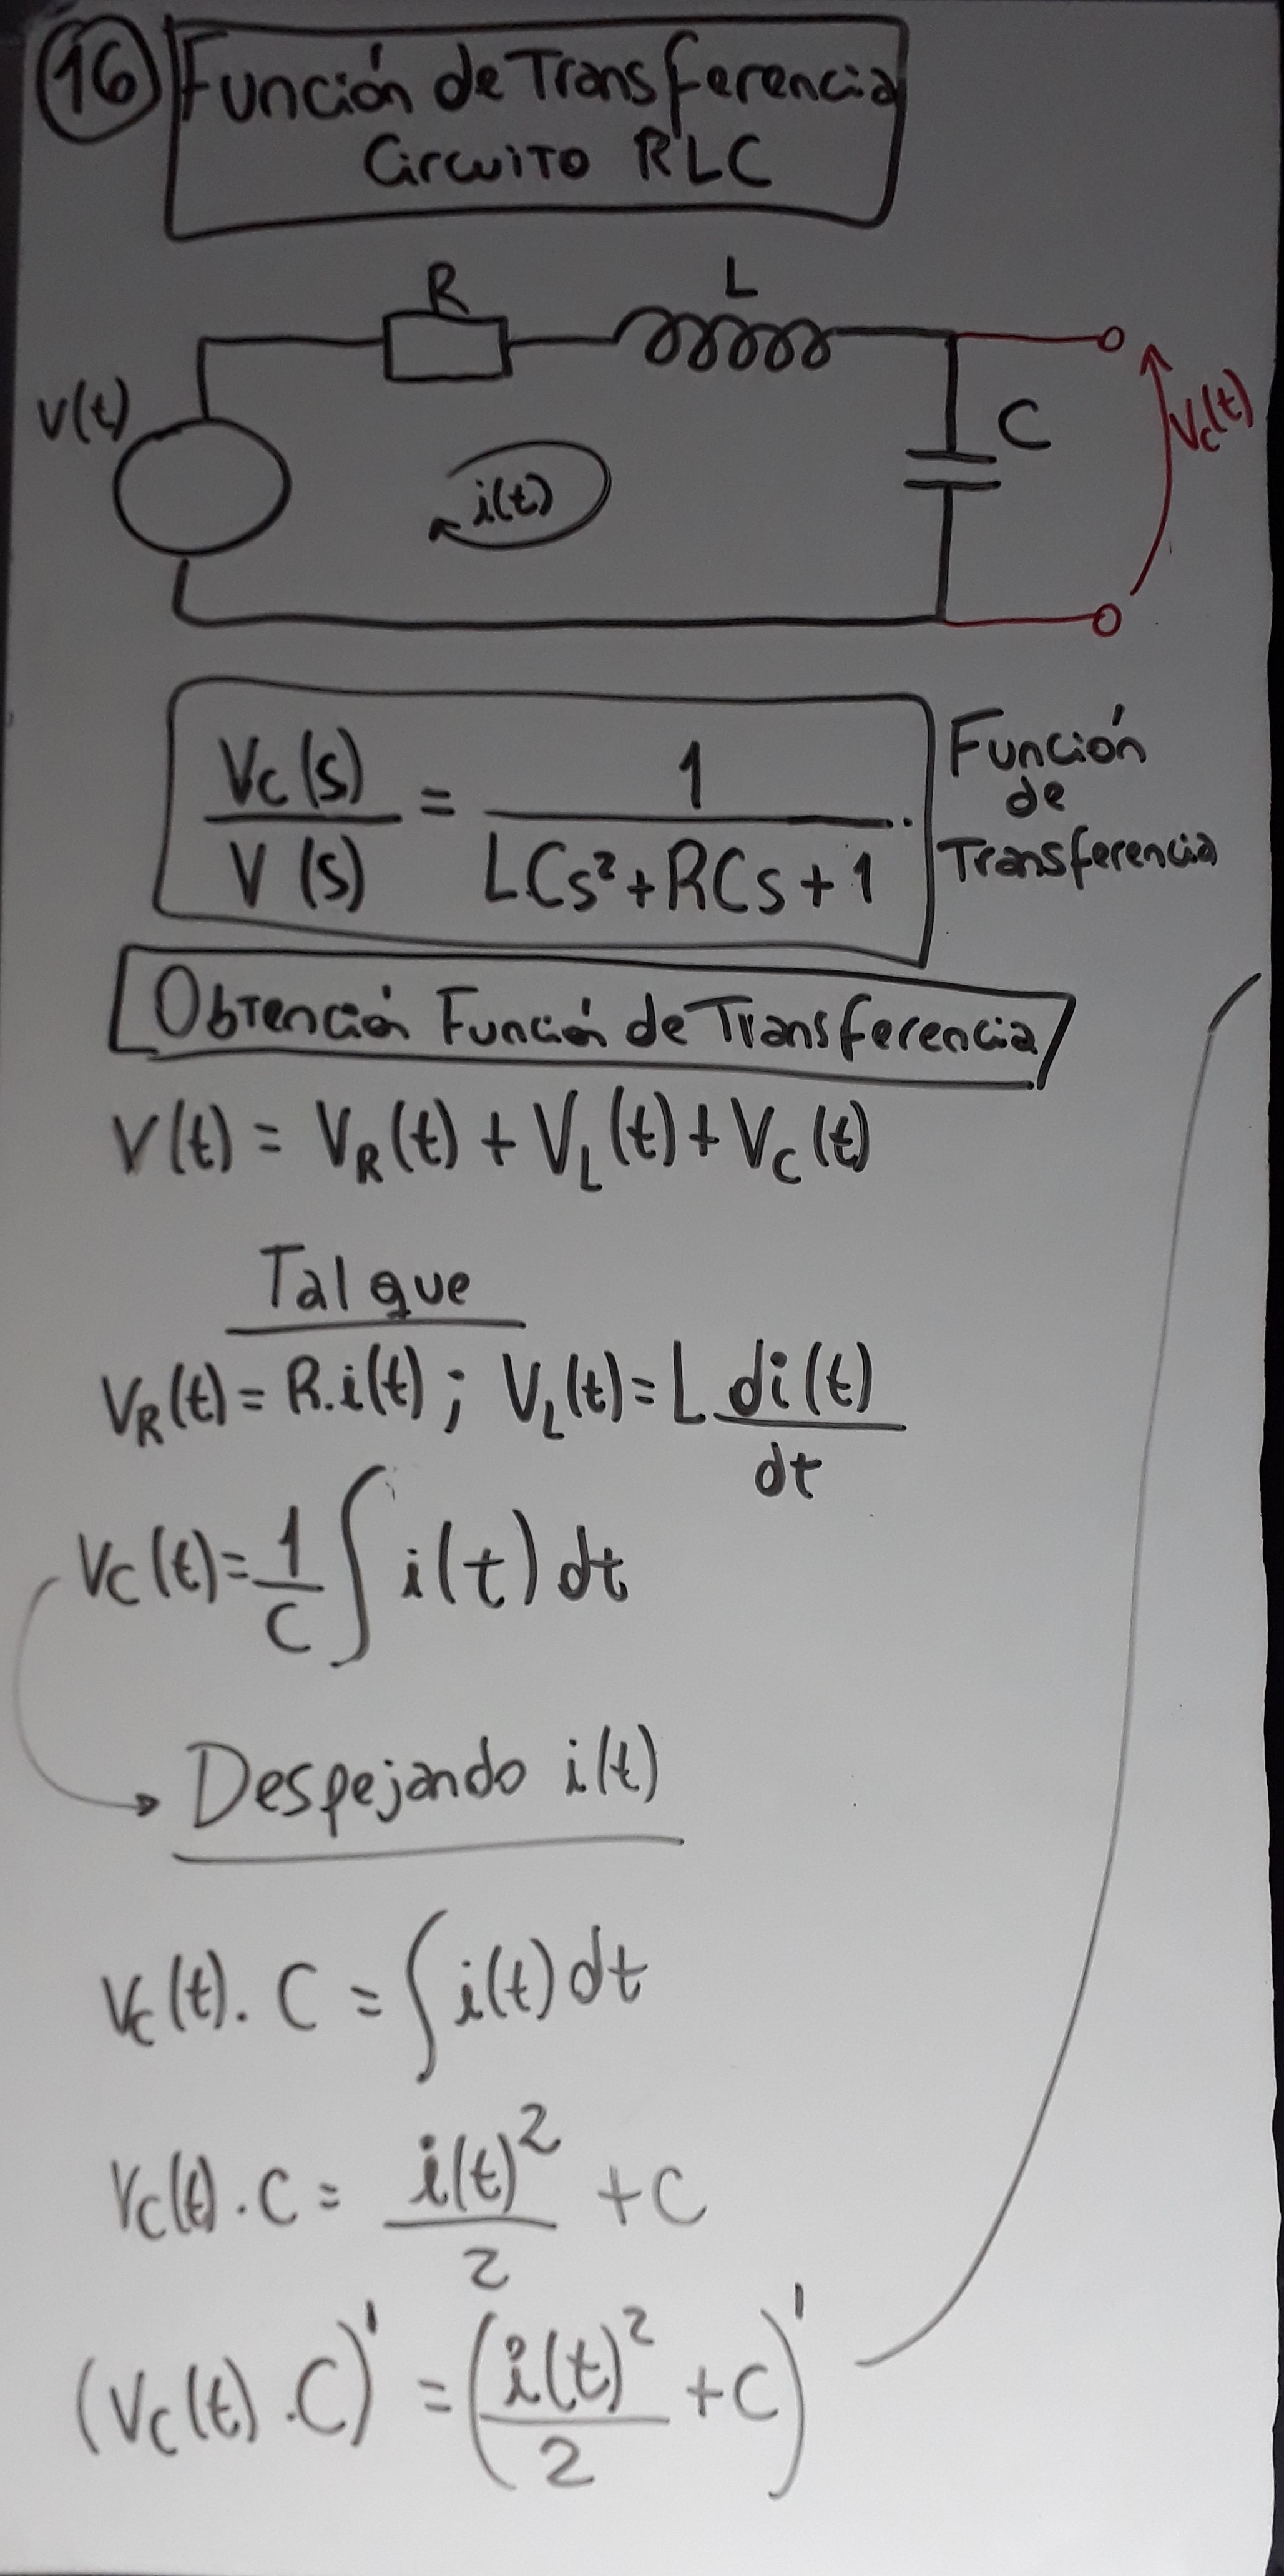 16 Función de Transferencia
Circuito RLC
R
L
V(t)
i(t)
C
Vc(t)
Vc(s) / V(s) = 1 / LCs²+RCs+1
Función
de
Transferencia
Obtención Función de Transferencia
V(t) = V_R(t) + V_L(t) + V_C(t)
Tal que
V_R(t) = R.i(t) ; V_L(t) = L di(t)/dt
Vc(t) = 1/C ∫ i(t) dt
Despejando i(t)
Vc(t). C = ∫ i(t) dt
Vc(t) . C = i(t)²/2 + C
(Vc(t) . C)' = (i(t)²/2 + C)'